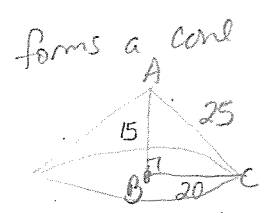 forms a cone
A
15 25
B 20 C